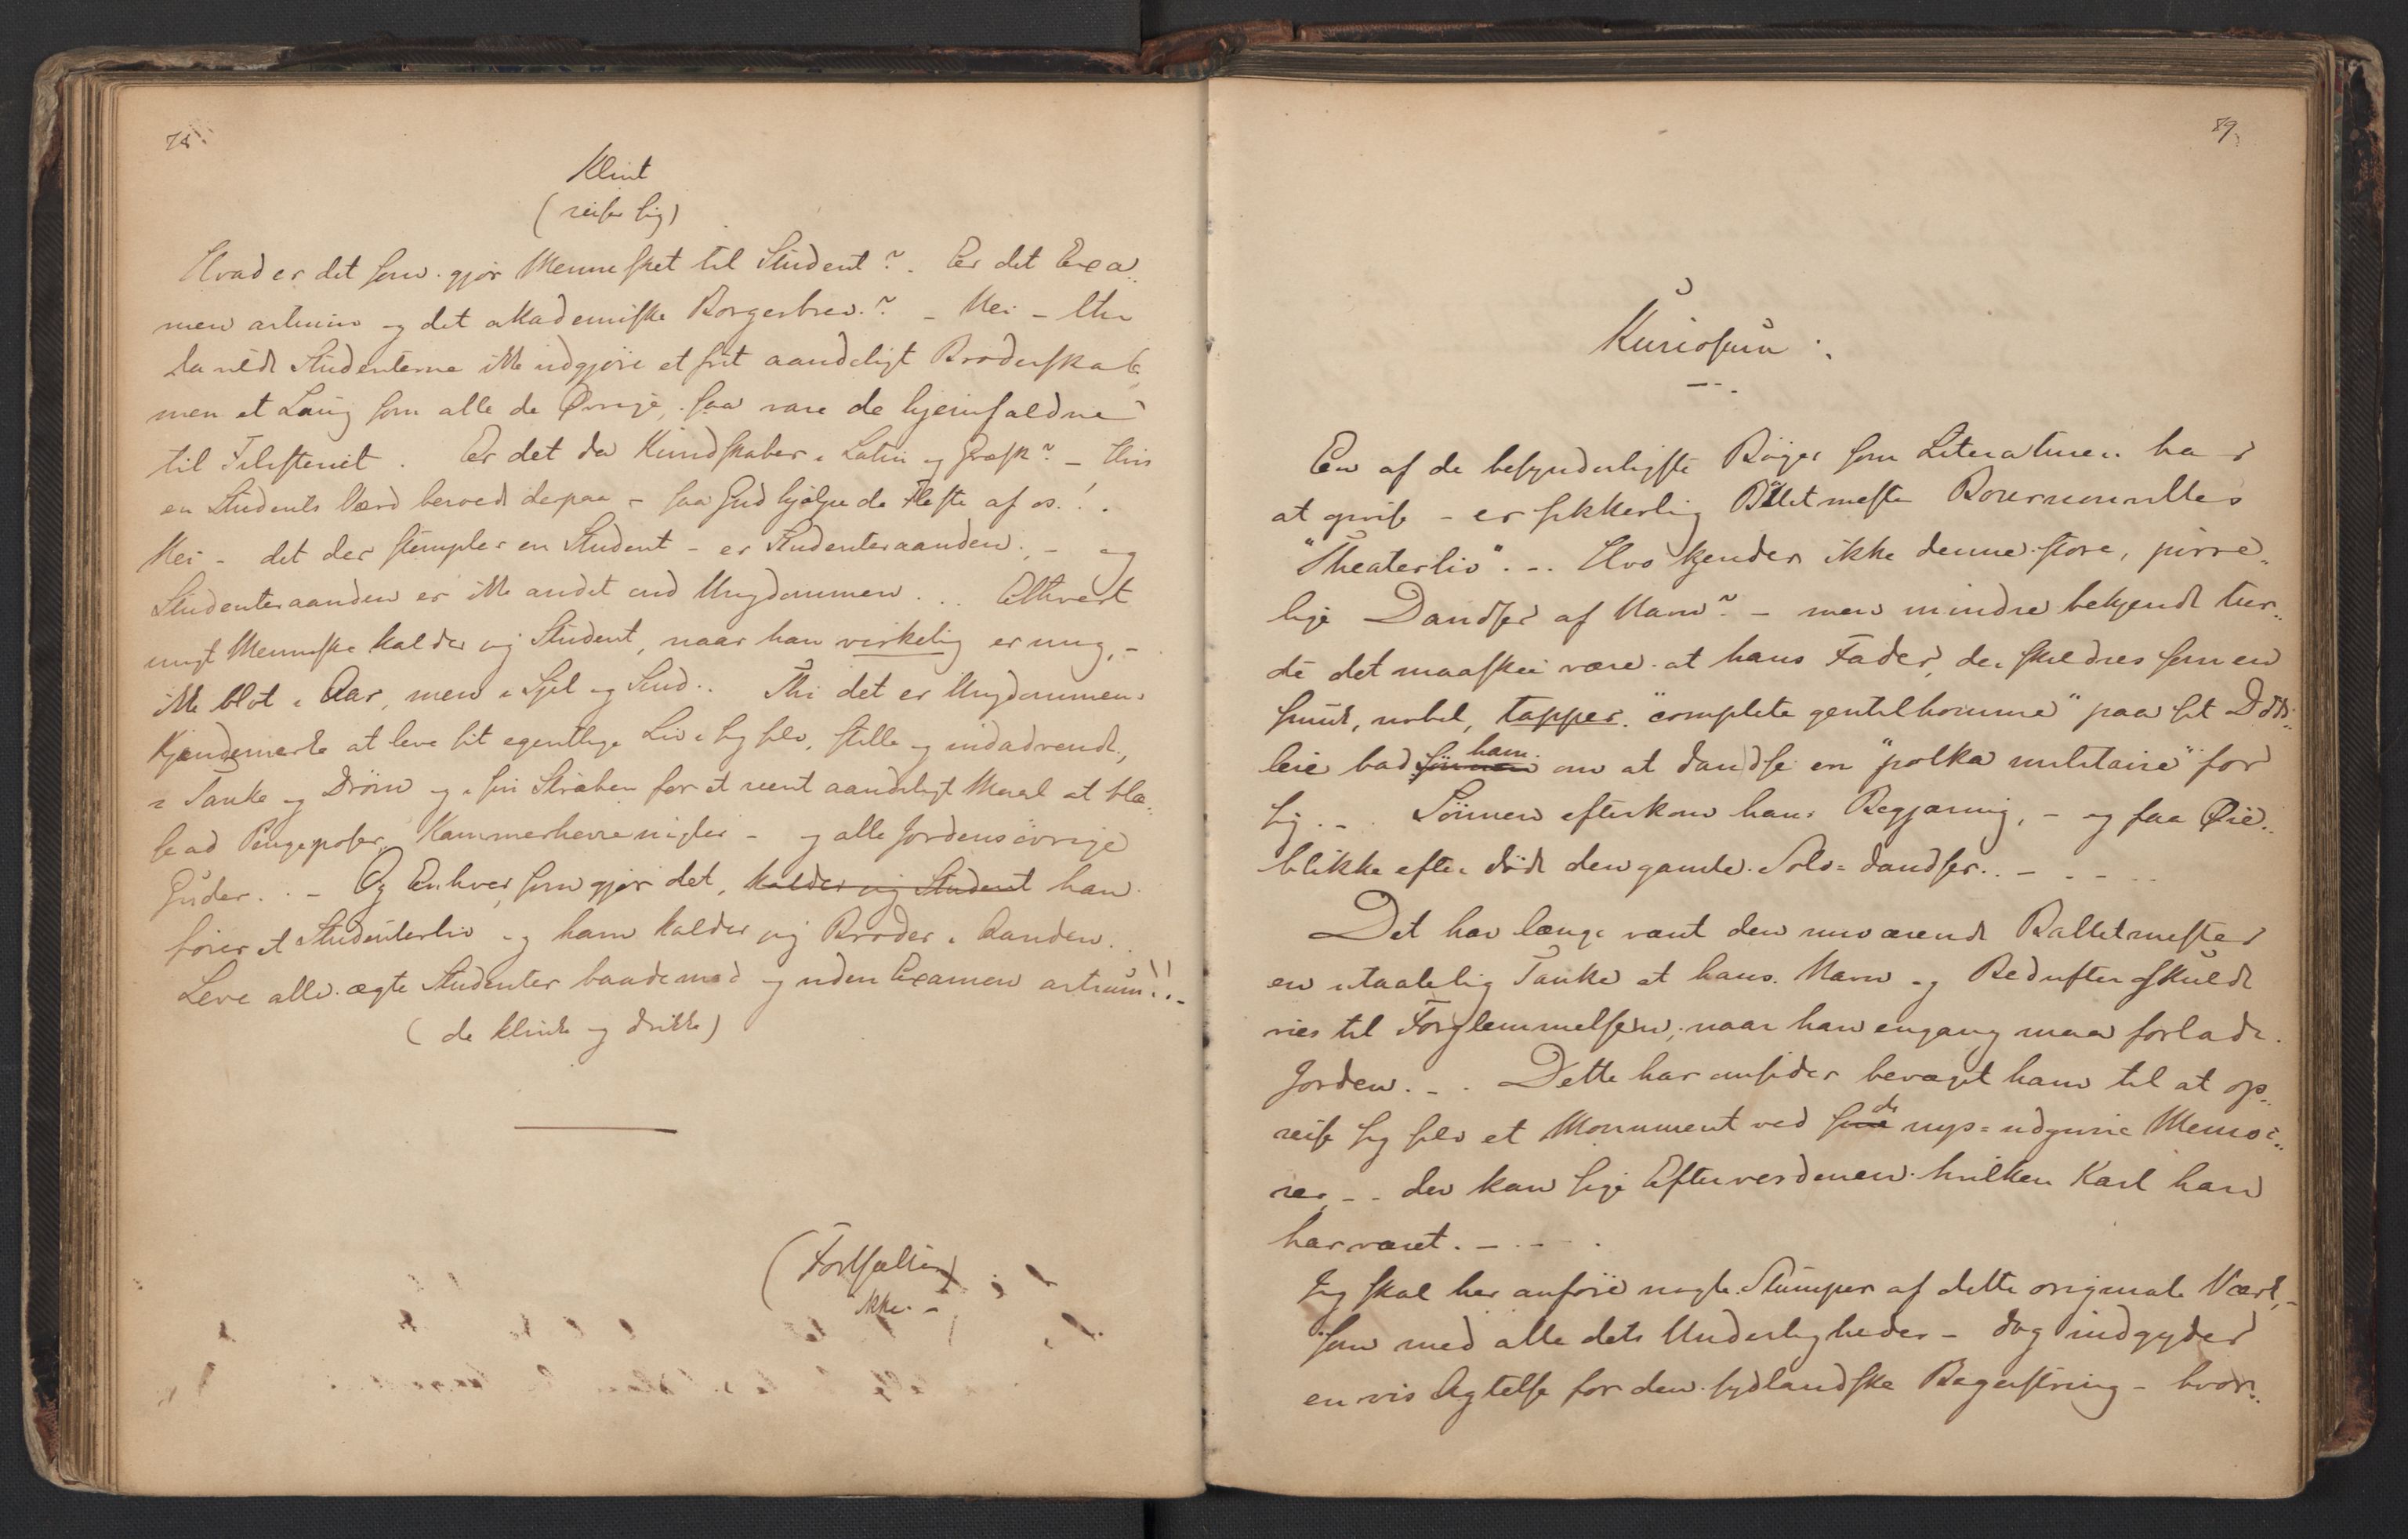 78.
Klint
(reiser sig)
Hvad er det som gjør Mennesket til Student? Er det Exa-
men artium og det akademiske Borgerbrev? – Nei – thi
da vilde Studenterne ikke udgjøre et frit aandeligt Broderskab,
men et Laug som alle de Øvrige, saa vare de hjemfaldne
til Filisteriet. Er det da Kundskaber i Latin og Græsk? – Hvis
en Students Værd beroede derpaa – saa Gud hjælpe de Fleste af os!.
Nei – det der stempler en Student – er Studenteraanden, – og
Studenteraanden er ikke andet end Ungdommen... Ethvert
ungt Menneske kalder jeg Student, naar han virkelig er ung, –
ikke blot i Aar, men i Sjel og Sind.. Thi det er Ungdommens
Kjendemerke at leve sit egentlige Liv i sig selv, stille og indadvendt,
i Tanke og Drøm og i sin Stræben for et reent aandeligt Maal at blæ-
se ad Pengeposer, Kammerherrenøgler – og alle Jordens øvrige
Guder. . – Og Enhver, som gjør det, kalder jeg Student han
fører et Studenterliv og ham kalder jeg Broder i Aanden.
Leve alle ægte Studenter baade med og uden Examen artium!!–
(de klinke og drikke)
(Fortsættes
ikke. –
89.
Kuriosum.
En af de besynderligste Bøger som Literaturen har
at opvise – er sikkerlig Balletmester Bournonvilles
"Theaterliv". – Hvo kjender ikke denne store, pirre-
lige Dandser af Navn? – men mindre bekjendt tur-
de det maaskee være at hans Fader, der skildres som en
smuk, nobel, tapper "complete gentilhomme" paa sit Døds-
leie bad Sønnen ham om at dandse en "polka militaire" for
sig. – Sønnen efterkom hans Begjæring, – og faa Øie-
blikke efter døde den gamle Solo-dandser. . – . – ..
Det har længe været den nuværende Balletmester
en utaalelig Tanke at hans Navn og Bedrifter skulde
vies til Forglemmelsen, naar han engang maa forlade
Jorden. – . Dette har omsider bevæget ham til at op-
reise sig selv et Monument ved sine de nys-udgivne Memoi-
rer, – . der kan sige Efterverdenen hvilken Karl han
har været. – . – .
Jeg skal her anføre nogle Stumper af dette originale Værk, –
som med alle dets Underligheder – dog indgyder
en vis Agtelse for den sydlandske Begeistring – hvor-